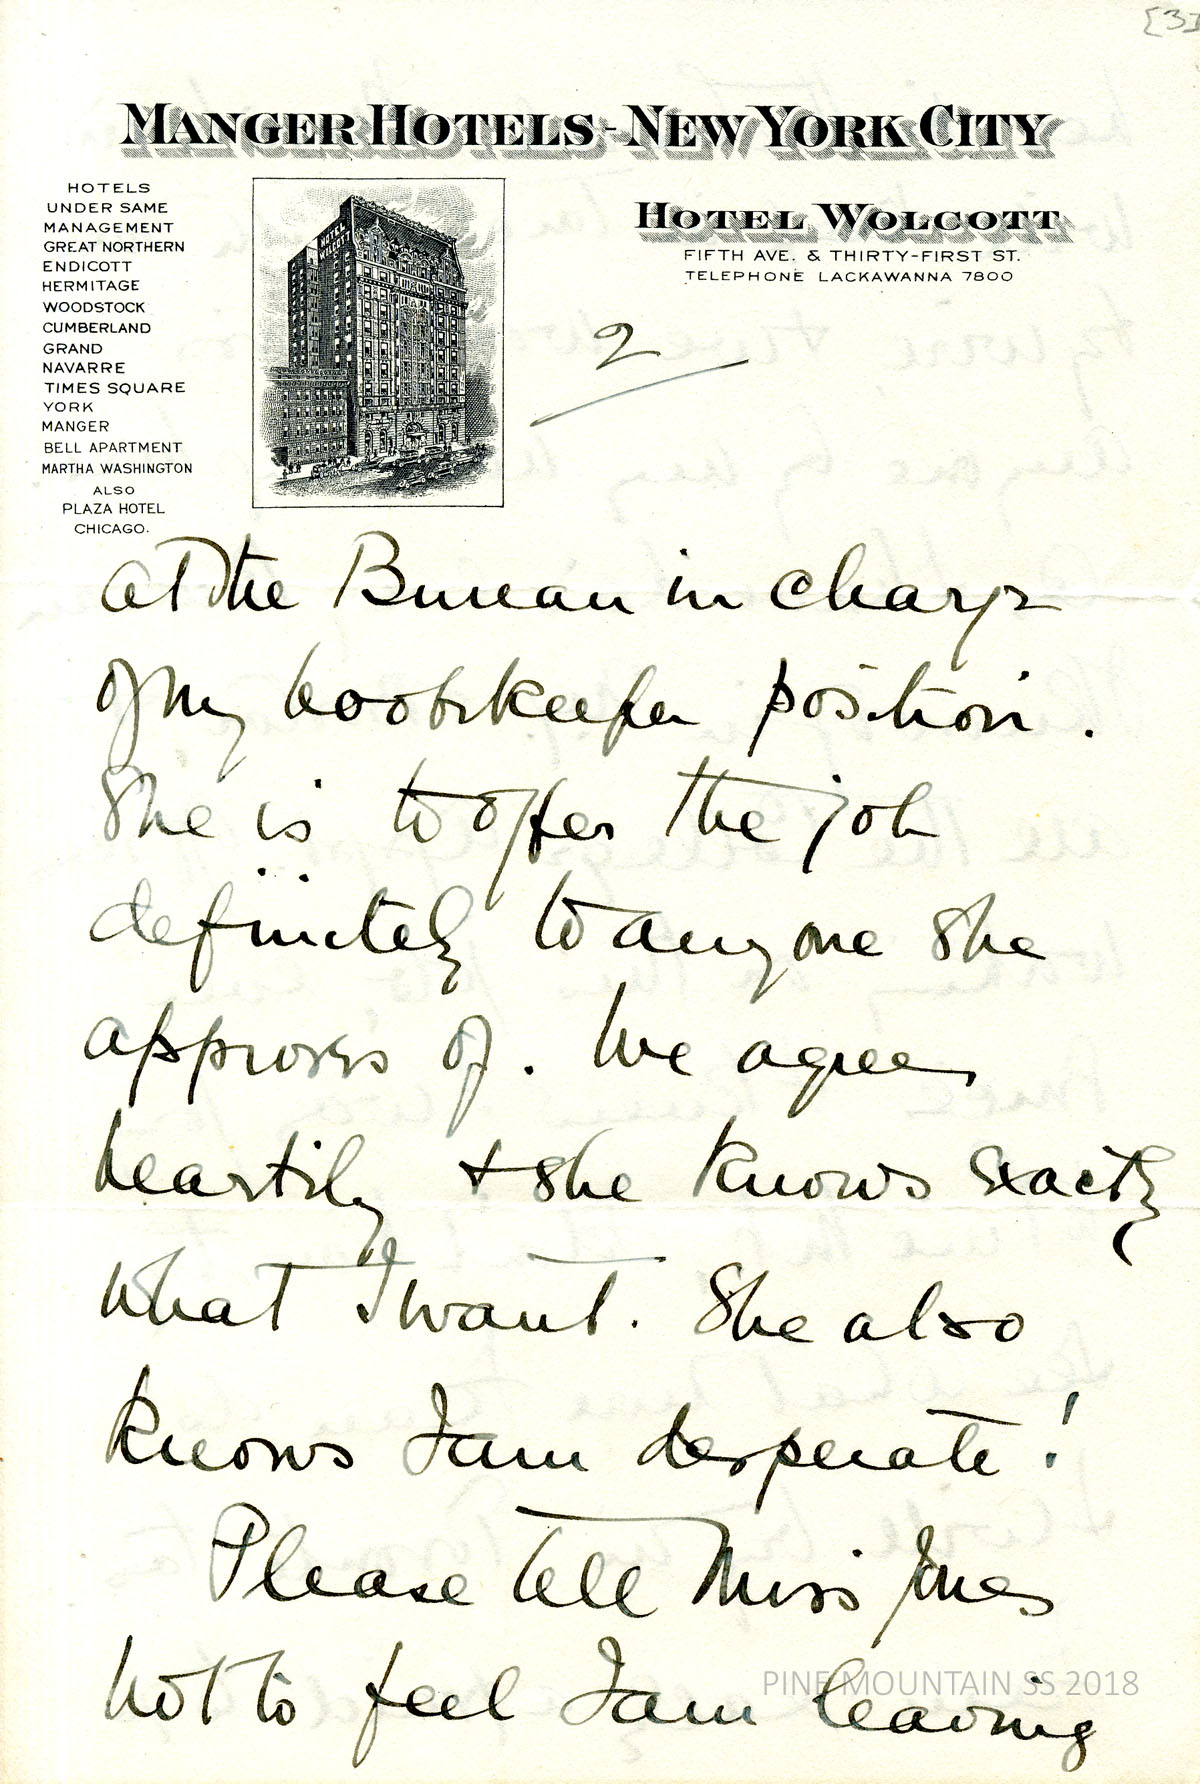 [3]
MANGER HOTELS - NEW YORK CITY
HOTELS
UNDER SAME
MANAGEMENT
GREAT NORTHERN
ENDICOTT
HERMITAGE
WOODSTOCK
CUMBERLAND
GRAND
NAVARRE
TIMES SQUARE
YORK
MANGER
BELL APARTMENT
MARTHA WASHINGTON
ALSO
PLAZA HOTEL
CHICAGO.
HOTEL
HOTEL WOLCOTT
FIFTH AVE. & THIRTY-FIRST ST.
TELEPHONE LACKAWANNA 7800
2
at the Bureau in charge
of my bookkeeper position.
She is to offer the job
definitely to any one she
approves of. We agree
heartily + she knows exactly
what I want. She also
knows I am desperate!
Please tell Miss Jones
not to feel I am leaving
PINE MOUNTAIN SS 2018